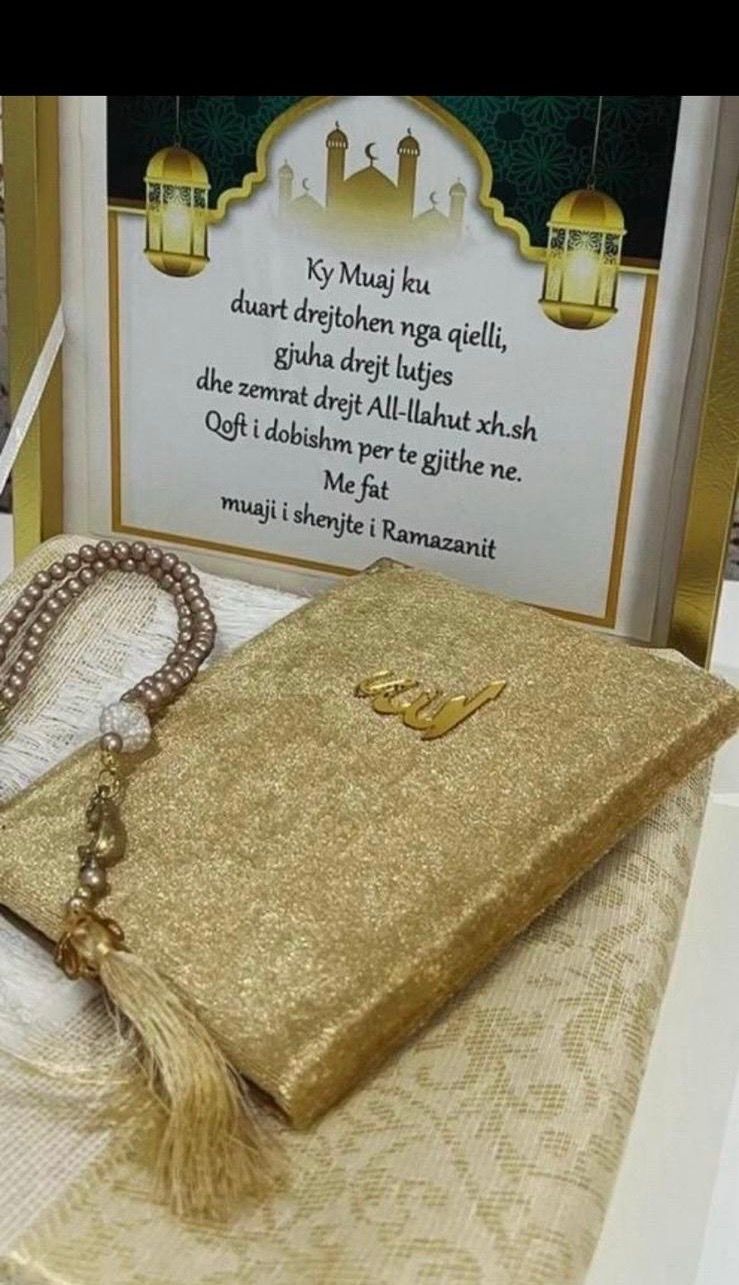 Ky Muaj ku
duart drejtohen nga qielli,
gjuha drejt lutjes
dhe zemrat drejt All-llahut xh.sh
Qoft i dobishm per te gjithe ne.
Me fat
muaji i shenjte i Ramazanit